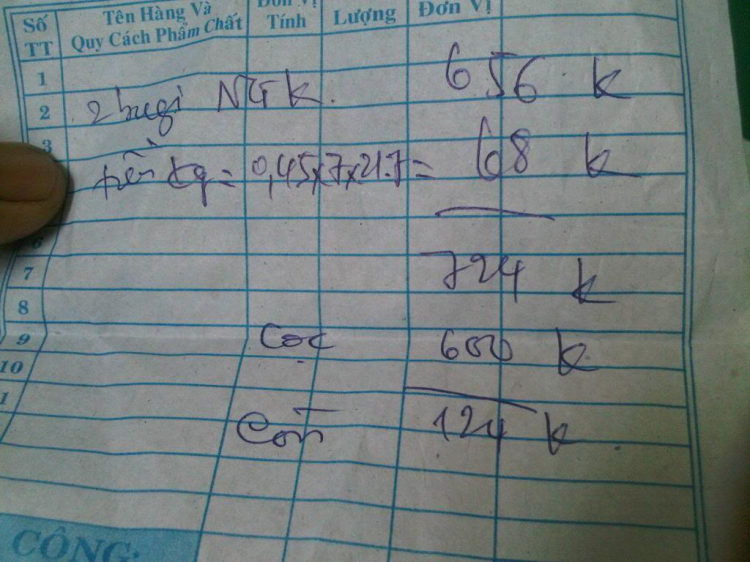 Số TT Tên Hàng Và Quy Cách Phẩm Chất Đơn Vị Tính Lượng Đơn Vị
1 656 k
2 2 bugi NGK
3 tiền kg = 0,45x7x21.7 = 68 k
6
7 724 k
8
9 Cọc 600 k
10
1 Còn 124 k
CỘNG: